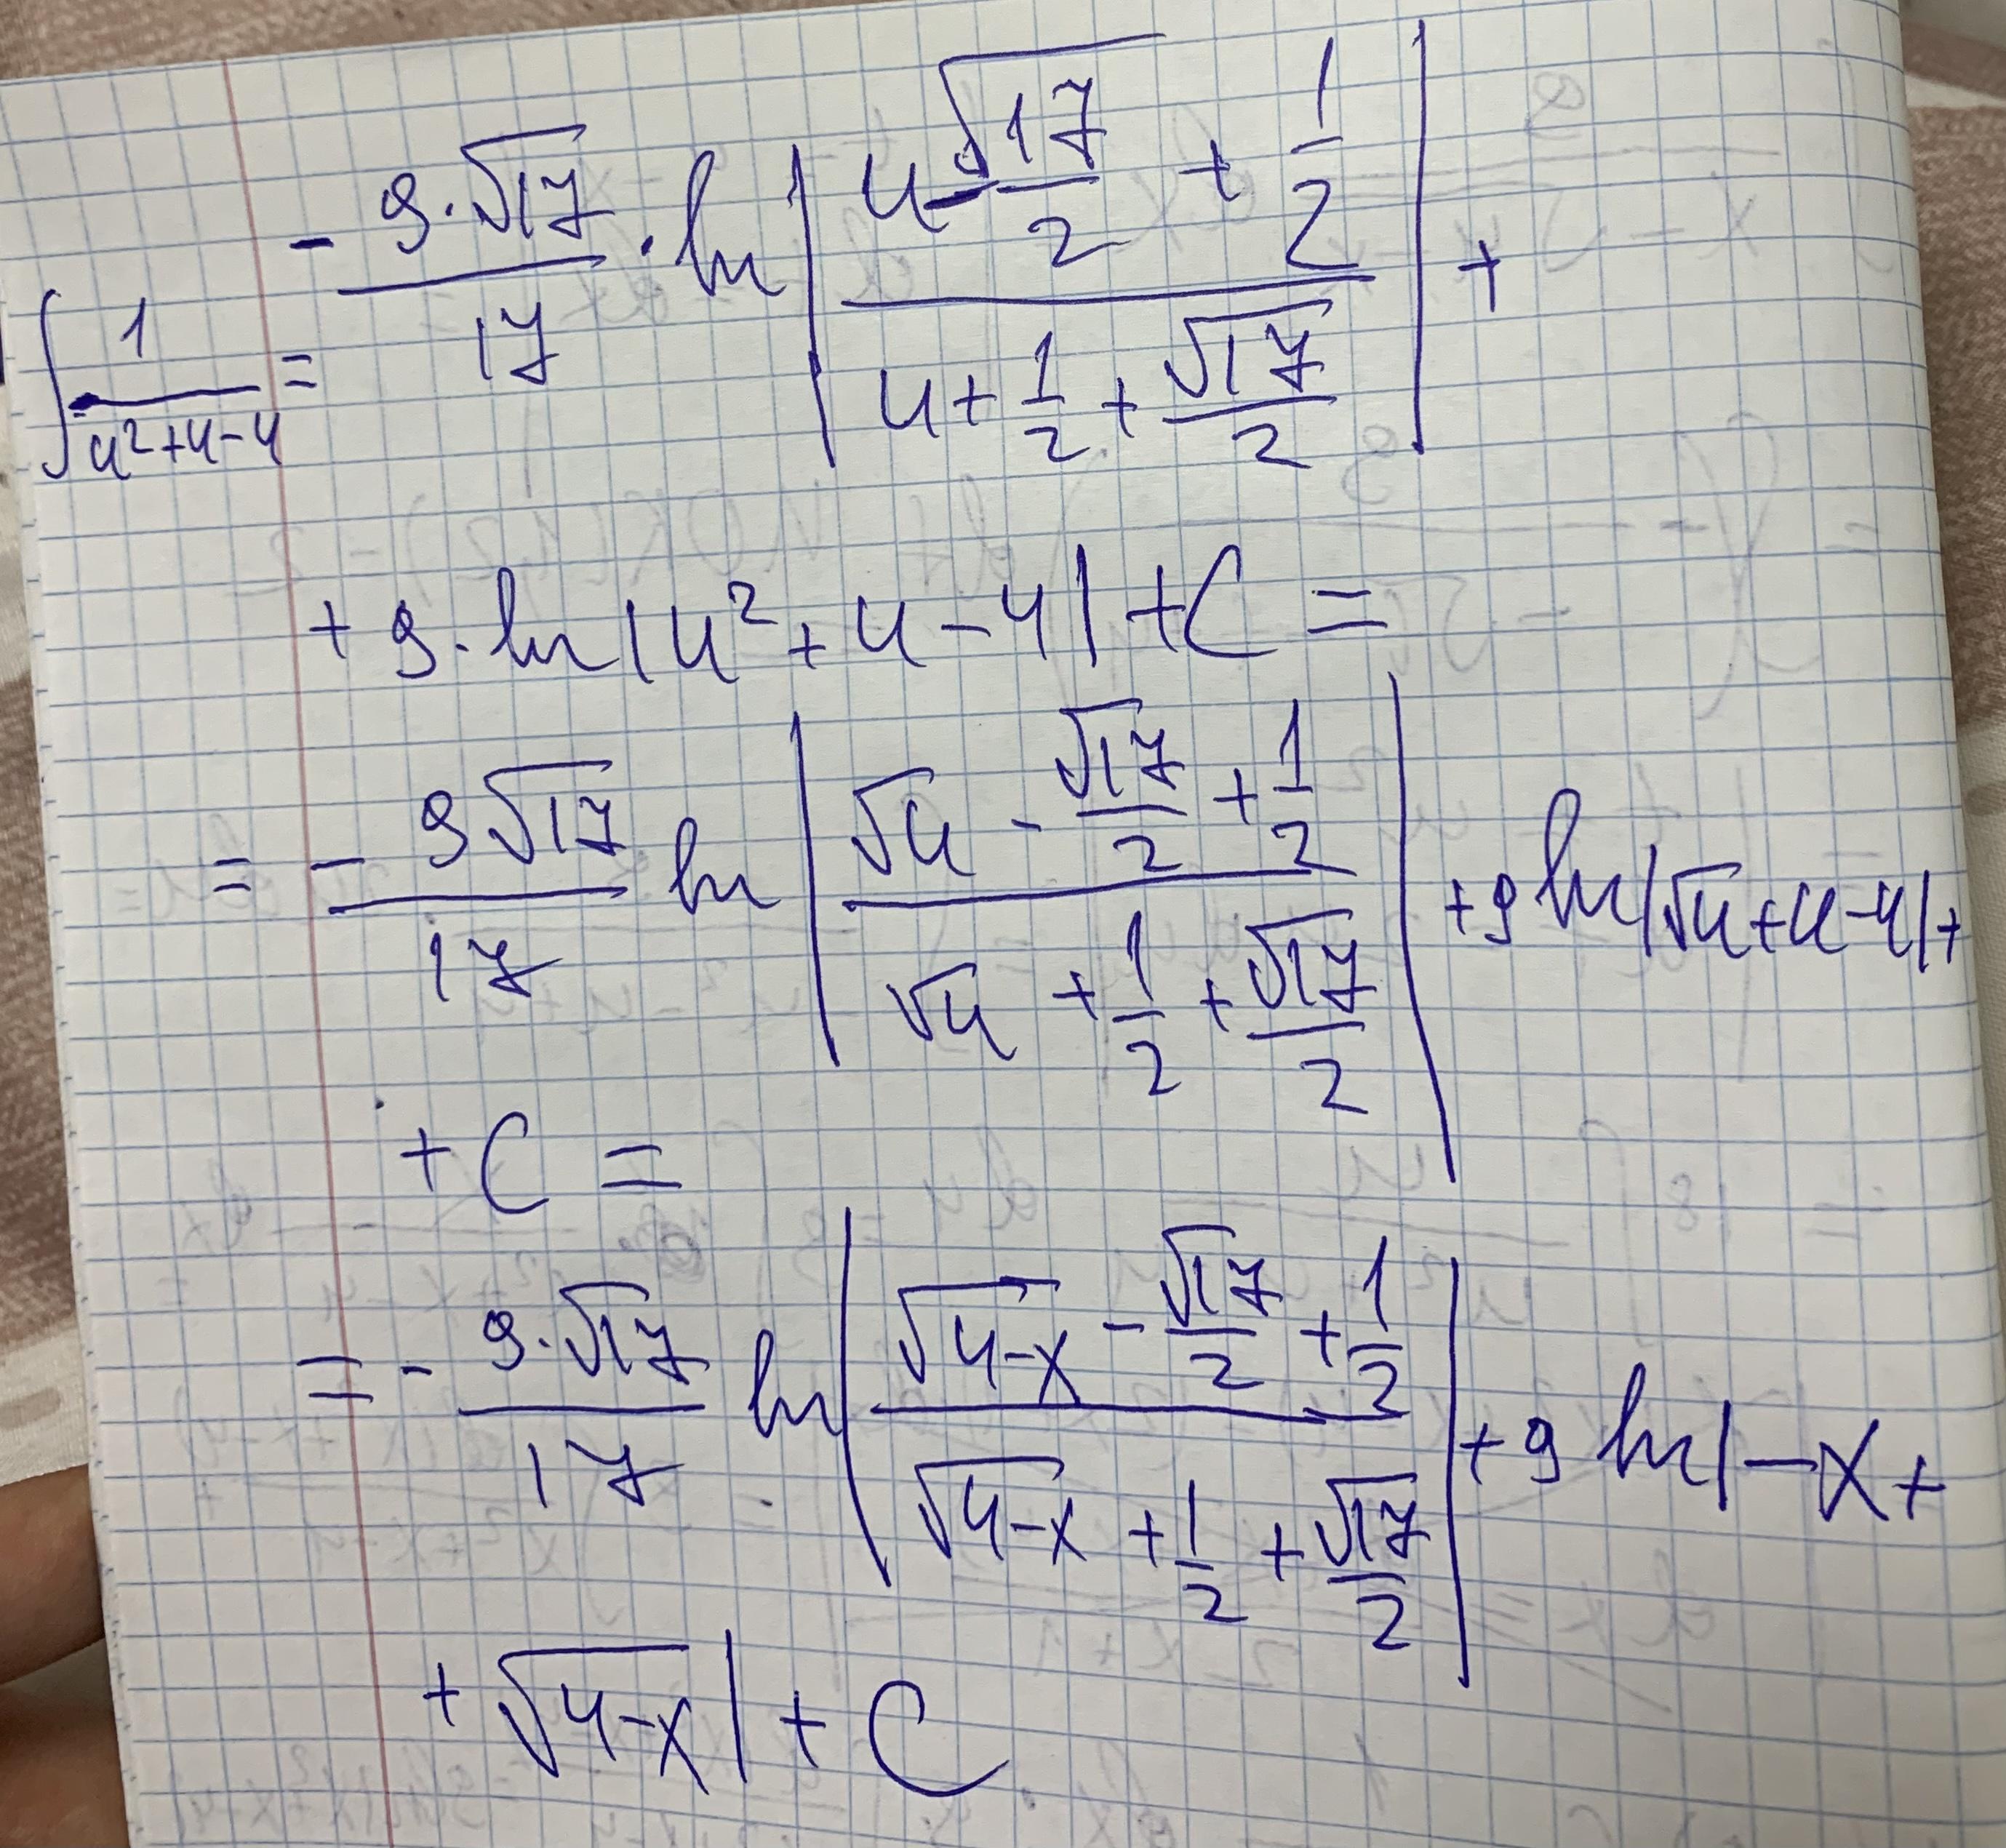 ∫ 1/(u²+u-4) = - (9·√17)/17 · ln |(u - √17/2 + 1/2)/(u + 1/2 + √17/2)| +
+ 9·ln|u²+u-4| + C =
= - (9√17)/17 ln |(√u - √17/2 + 1/2)/(√u + 1/2 + √17/2)| + 9 ln|√u+u-4| +
+ C =
= - (9·√17)/17 ln |(√(4-x) - √17/2 + 1/2)/(√(4-x) + 1/2 + √17/2)| + 9 ln|-x +
+ √(4-x)| + C